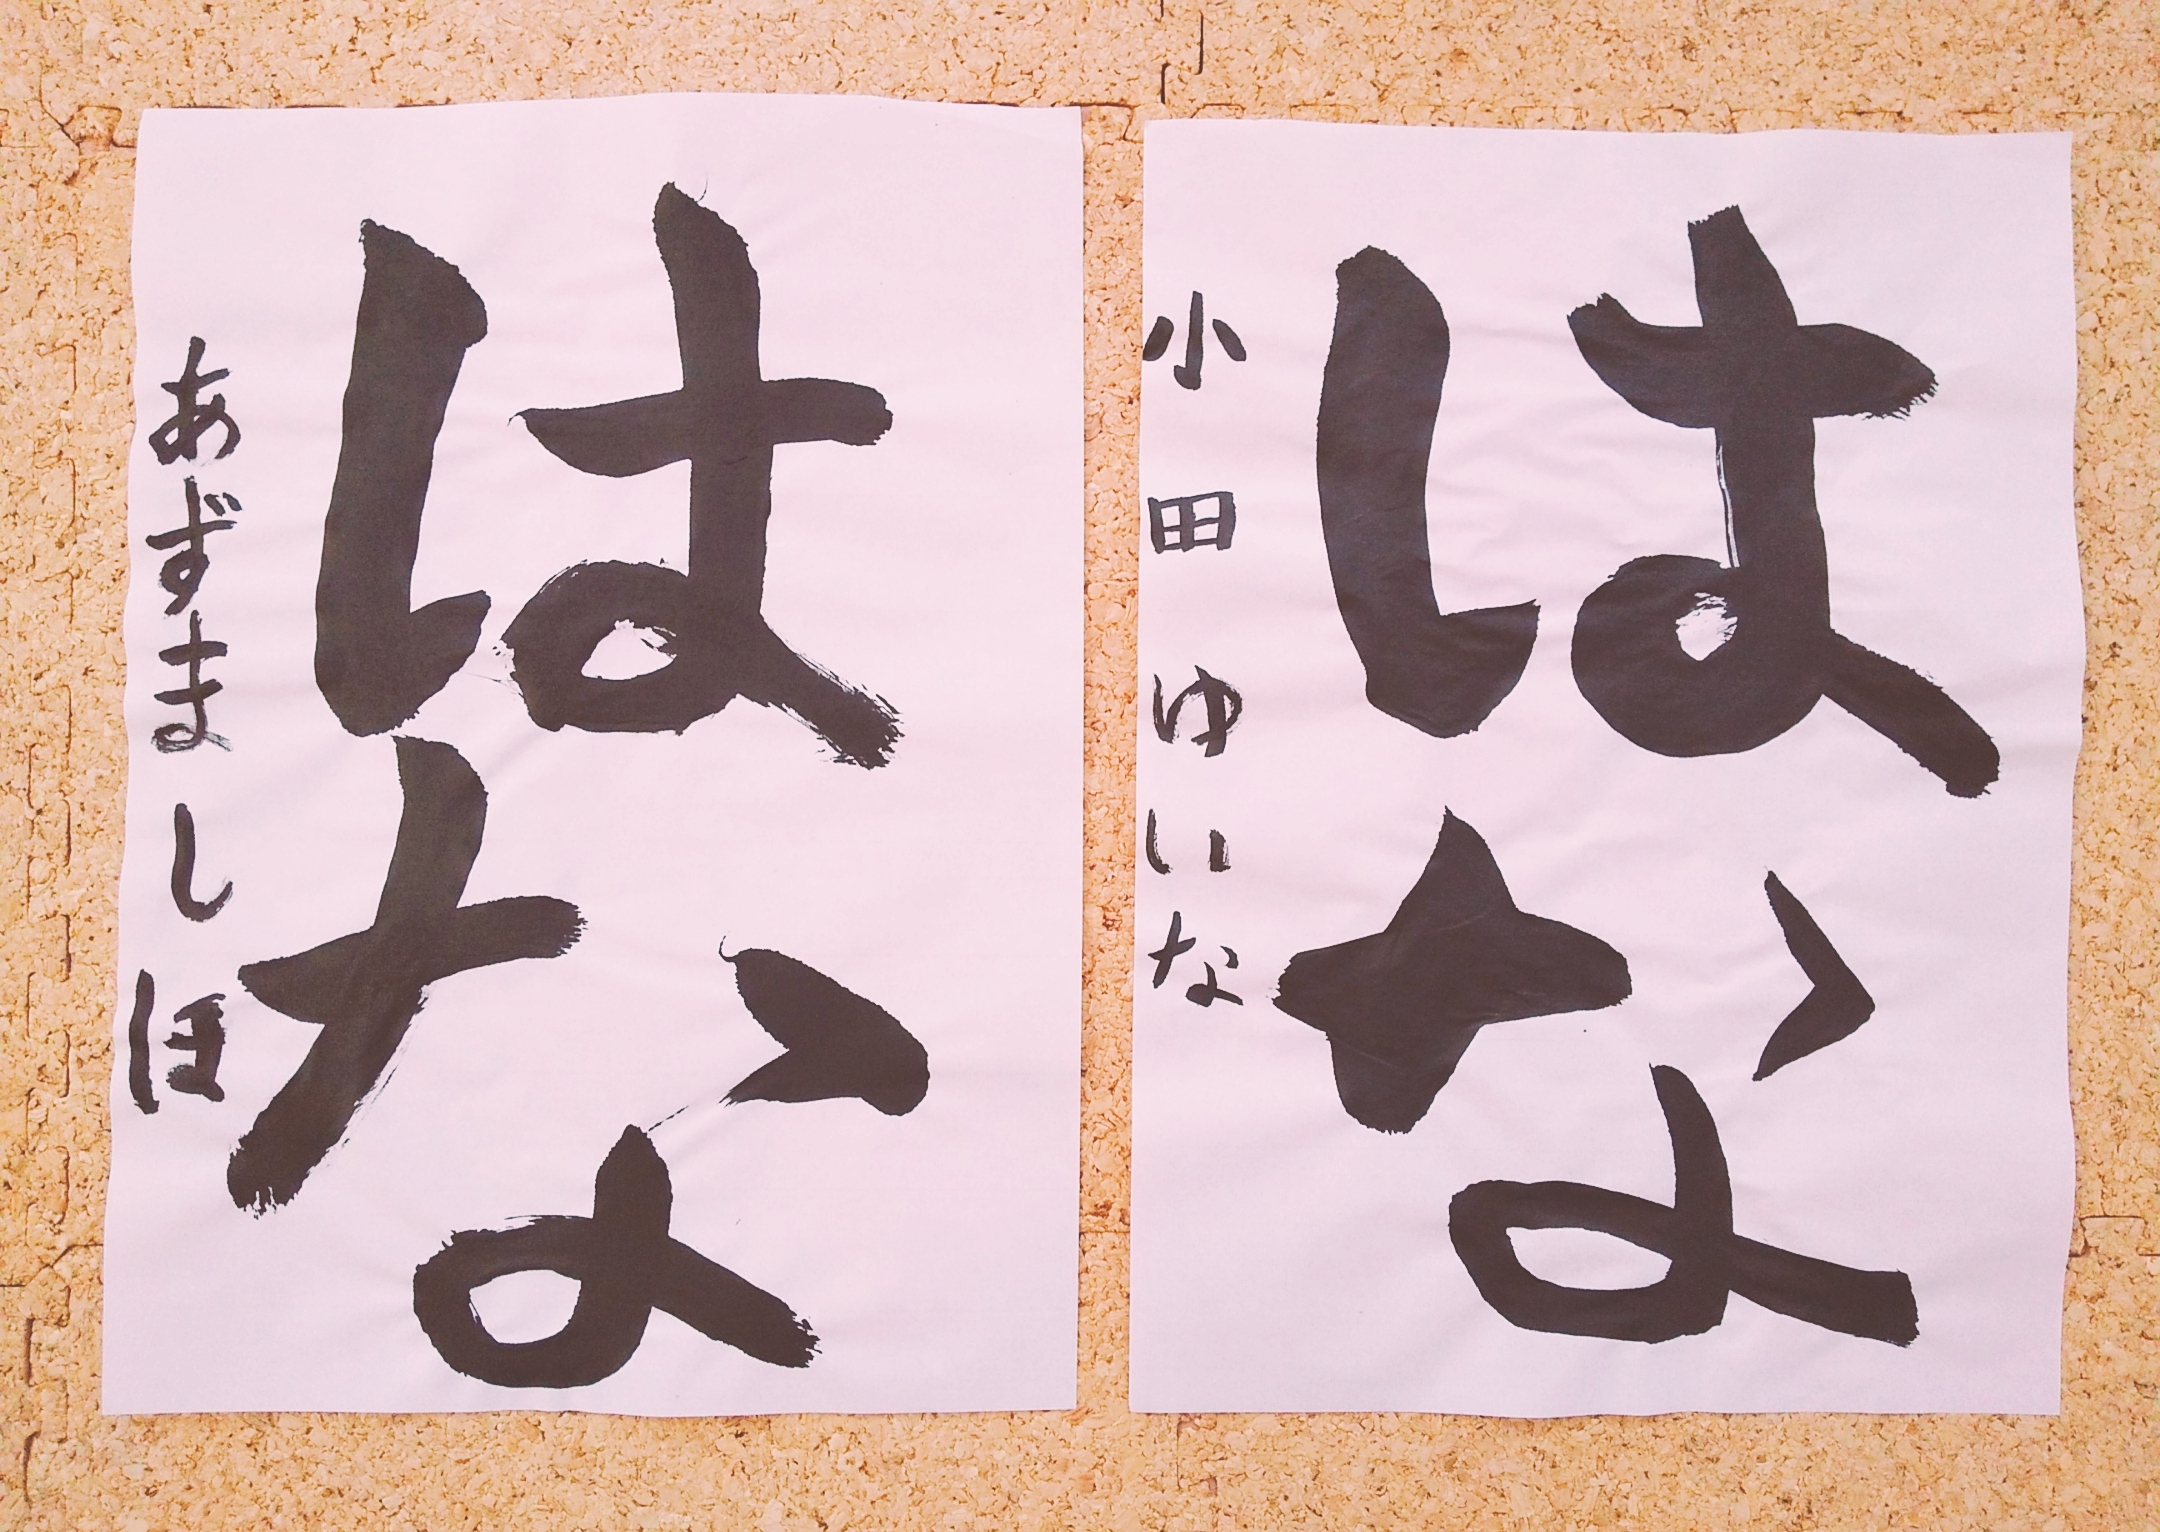 はな
小田ゆいな
はな
あずましほ